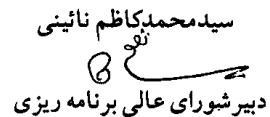 سیدمحمدکاظم نائینی
دبیر شورای عالی برنامه ریزی